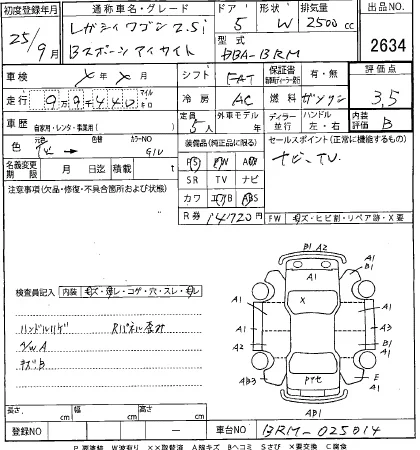 初度登録年月 通称車名・グレード ドア 形状 排気量 出品NO.
25/9月 レガシィワゴン 2.5i 5 W 2500cc
Bスポーツアイサイト 型式 DBA-BRM 2634
車検 X年X月 シフト FAT 保証書 有・無 評価点
走行 99440 マイル キロ 冷房 AC 燃料 ガソリン 3.5
車歴 自家用・レンタ・事業用( ) 定員 5人 外車モデル 年 ディーラー 並行 ハンドル 左・右 内装評価 B
色 元色 色替 カラーNO G1U 装備品(純正品に限る) セールスポイント(正常に機能するもの)
名義変更期限 月 日迄 積載 t PS PW ナビ、TV
注意事項(欠品・修復・不具合箇所および状態) SR TV ナビ
カワ エアB ABS
R券 14720円 FW キズ・ヒビ割・リペア跡・X要
B1 A2
A1 B1
A1
A1 X A1
A1 A3
A2 B1
A1 E
AB3 A1
AB1
検査員記入 内装 キズ・ヨゴレ・コゲ・穴・スレ・モレ
ハンドルハゲ Rパネル歪み
A
キズ、B
長さ cm 幅 cm 高さ cm
登録NO ー 車台NO BRM-025014
P要塗装 W波有り XX取替済 Aキズ Bヘコミ Sさび X要交換 C腐食